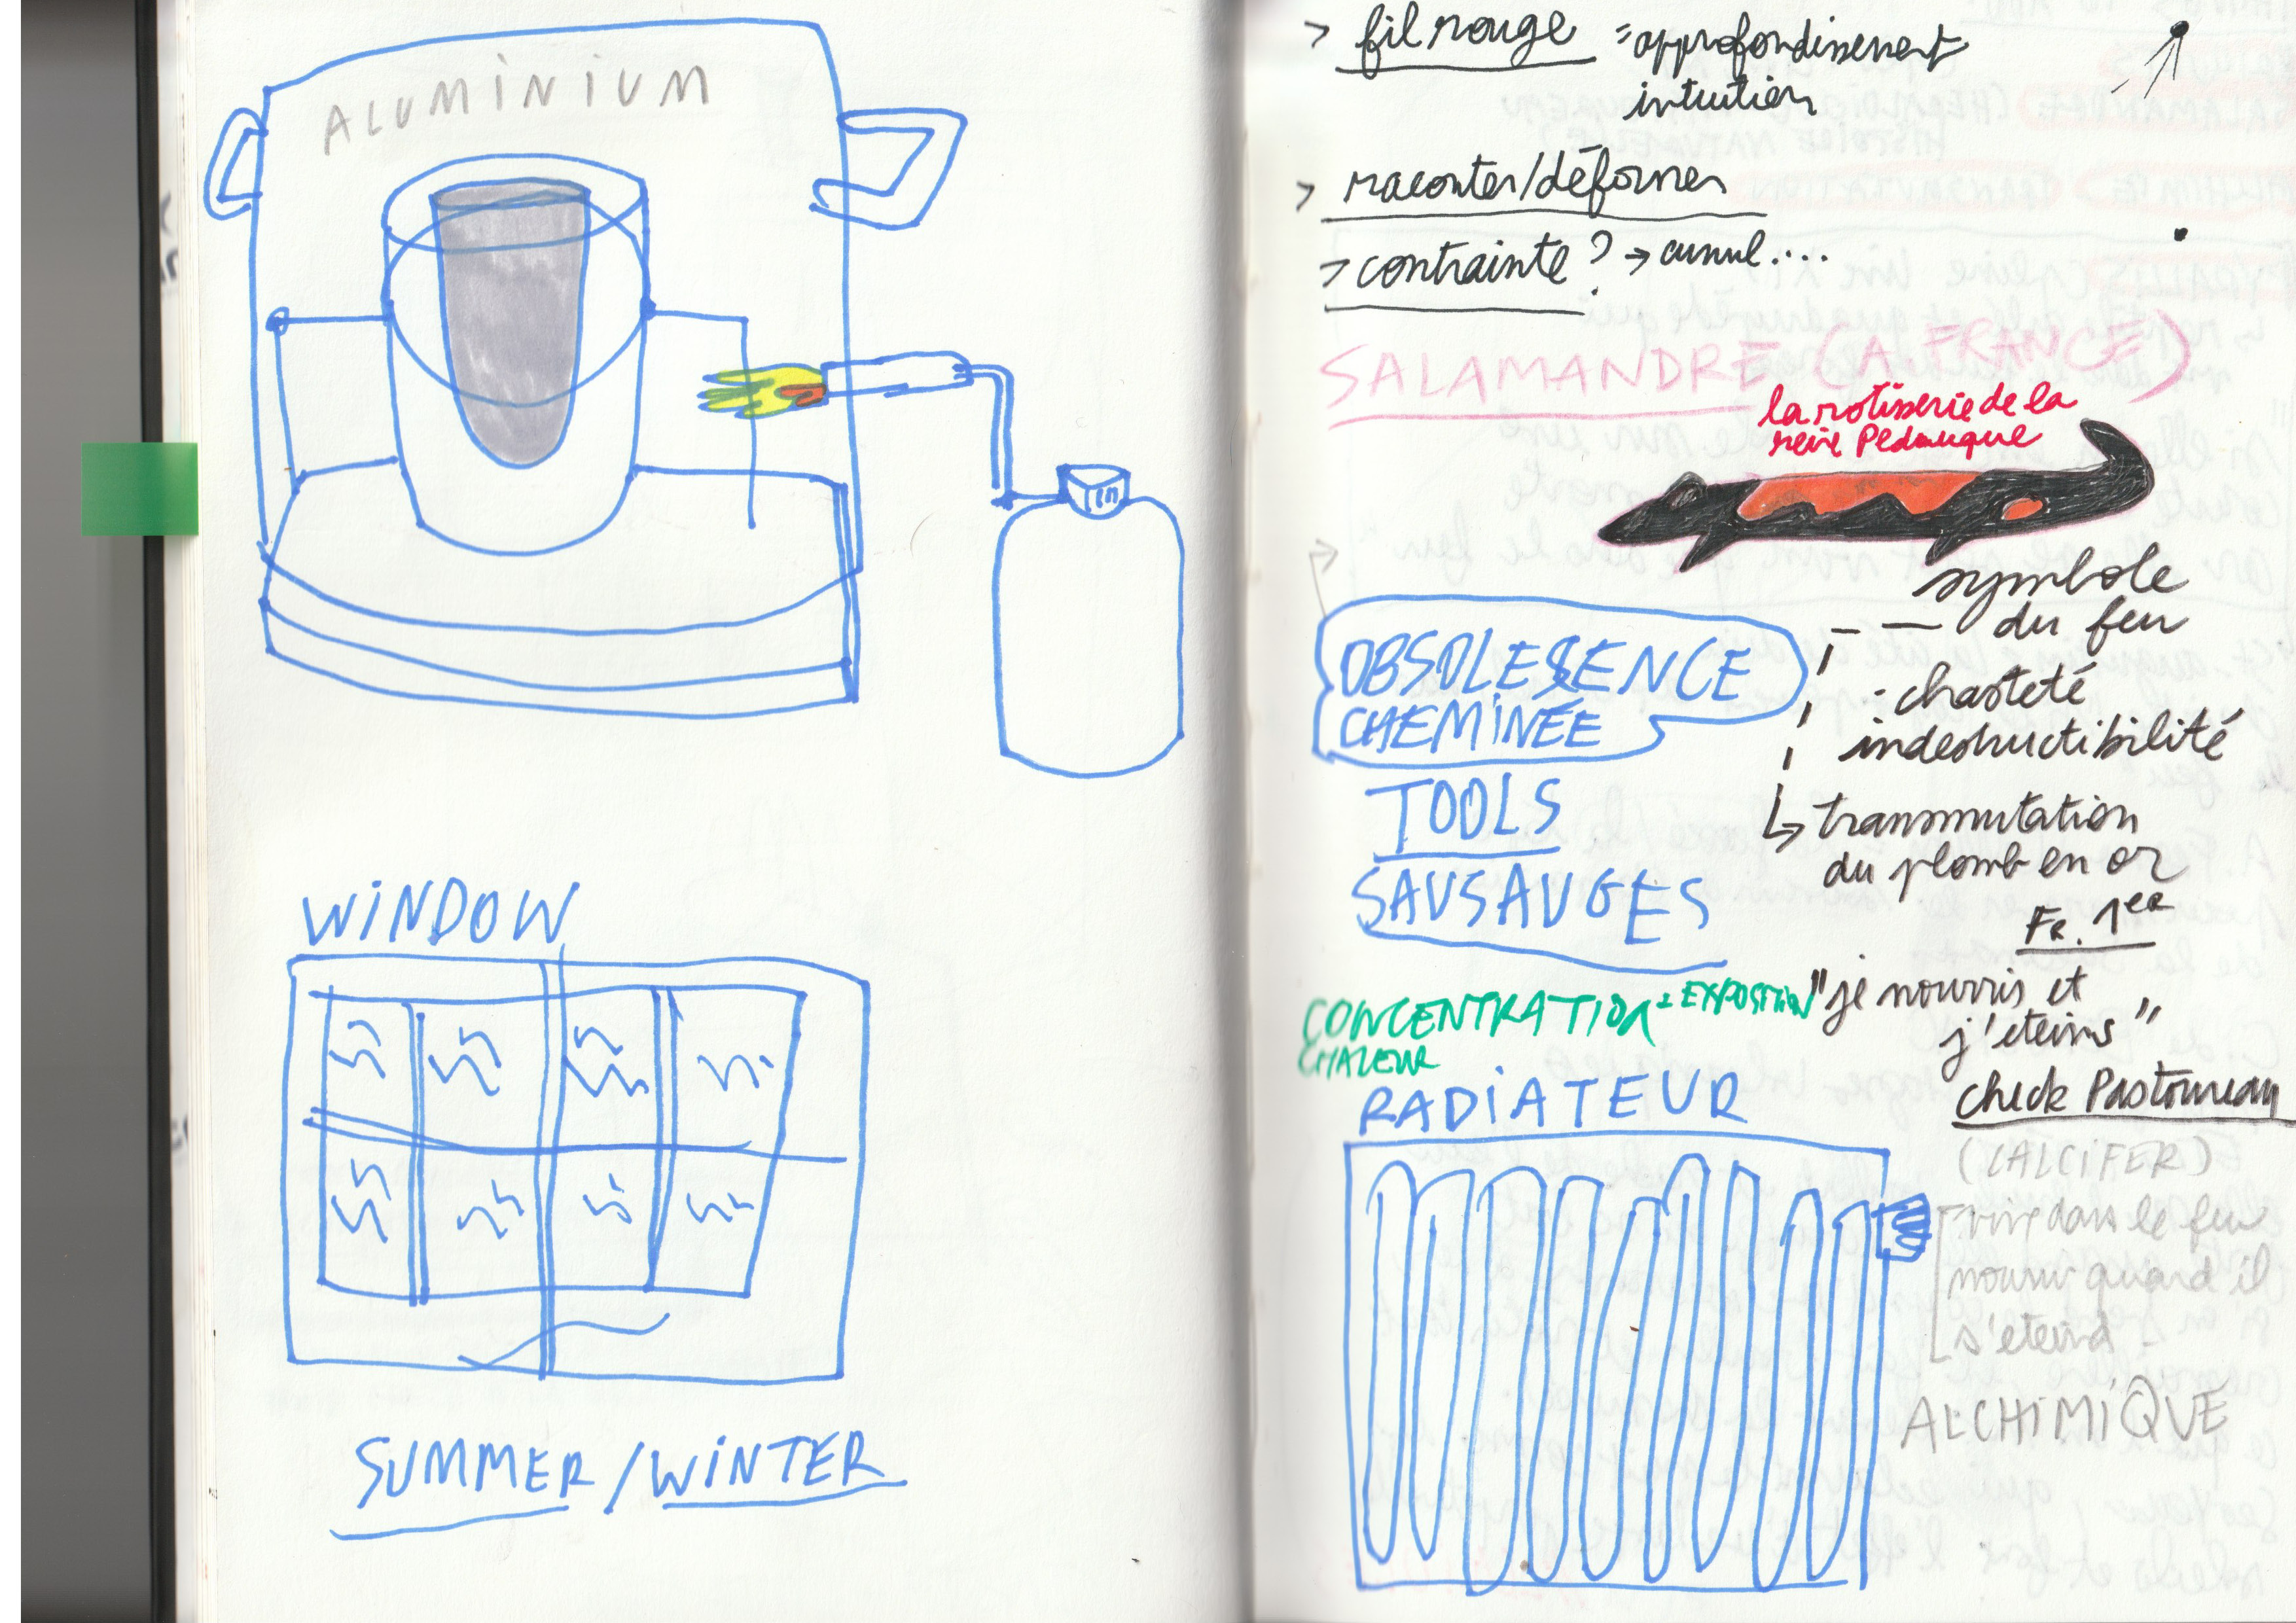 ALUMINIUM
WINDOW
SUMMER / WINTER
> fil rouge = approfondissement
intuition
> raconter/déformer
> contrainte ? → cumul....
SALAMANDRE (A. FRANCE)
la rotisserie de la
reine Pedauque
symbole
du feu
- chasteté
indestructibilité
↳ transmutation
du plomb en or
Fr. 1er
"je nourris et
j'eteins"
check Pastoureau
(CALCIFER)
vive dans le feu
mourir quand il
s'eteind -
ALCHIMIQUE
OBSOLESCENCE
CHEMINÉE
TOOLS
SAUSAUGES
CONCENTRATION = EXPOSITION
CHALEUR
RADIATEUR